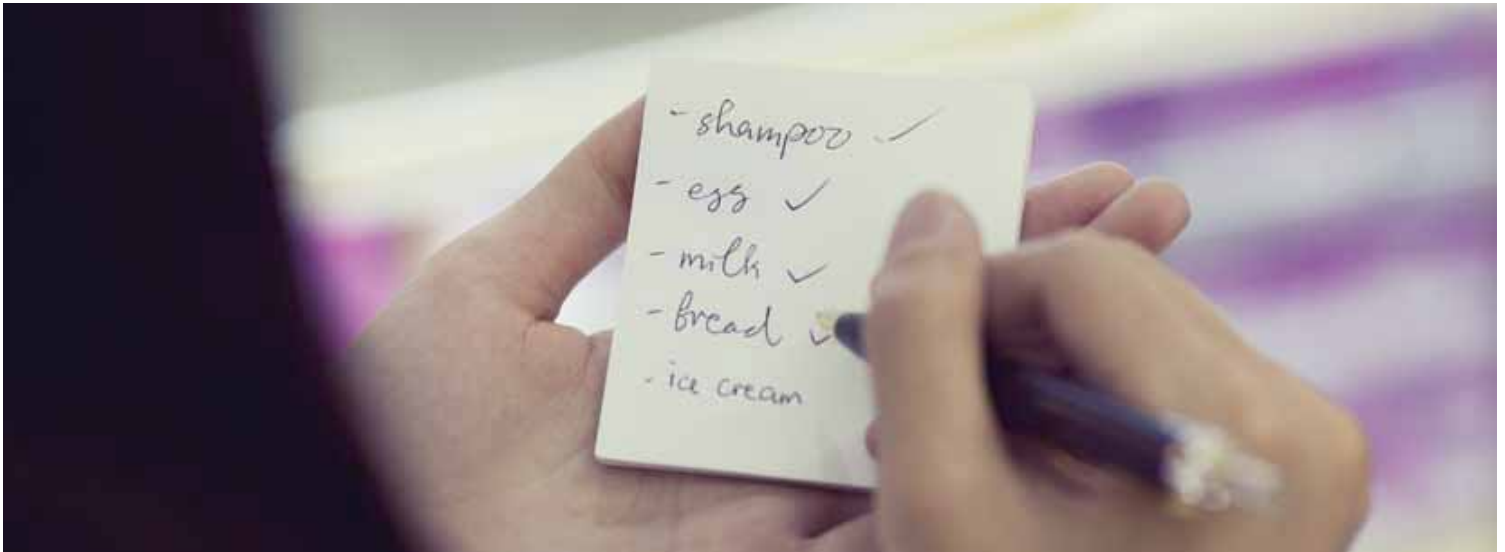 - shampoo ✓
- egg ✓
- milk ✓
- bread ✓
- ice cream